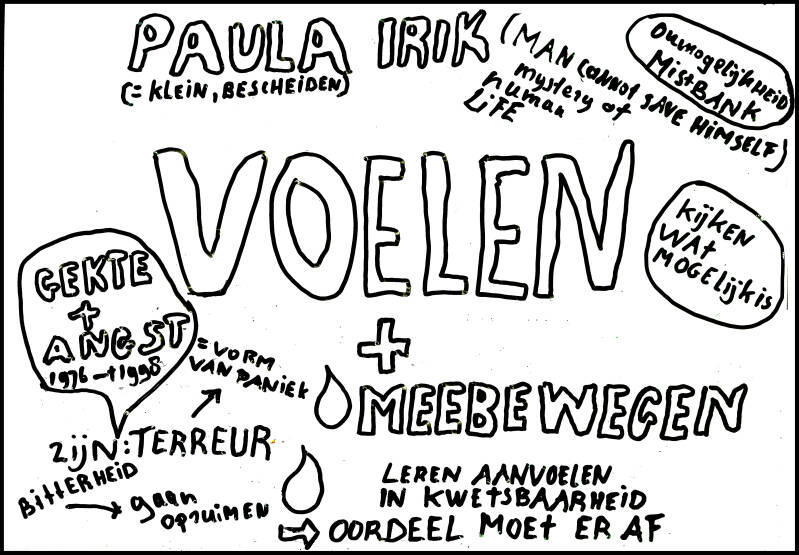 PAULA IRIK
(= KLEIN, BESCHEIDEN)
(MAN CANNOT SAVE HIMSELF)
mystery of
human
LiFE
Onmogelijkheid
MistBANK
VOELEN
kijken
WAt
MOGElijk is
GEKTE
+
ANGST
1976 → +1998
= VORM
VAN PANIEK
+
MEEBEWEGEN
ZijN: TERREUR
BittERHEiD
→ gaan
opruimen
LEREN AANVOELEN
IN KWEtSBAARHEID
⇒ OORDEEL MOEt ER AF